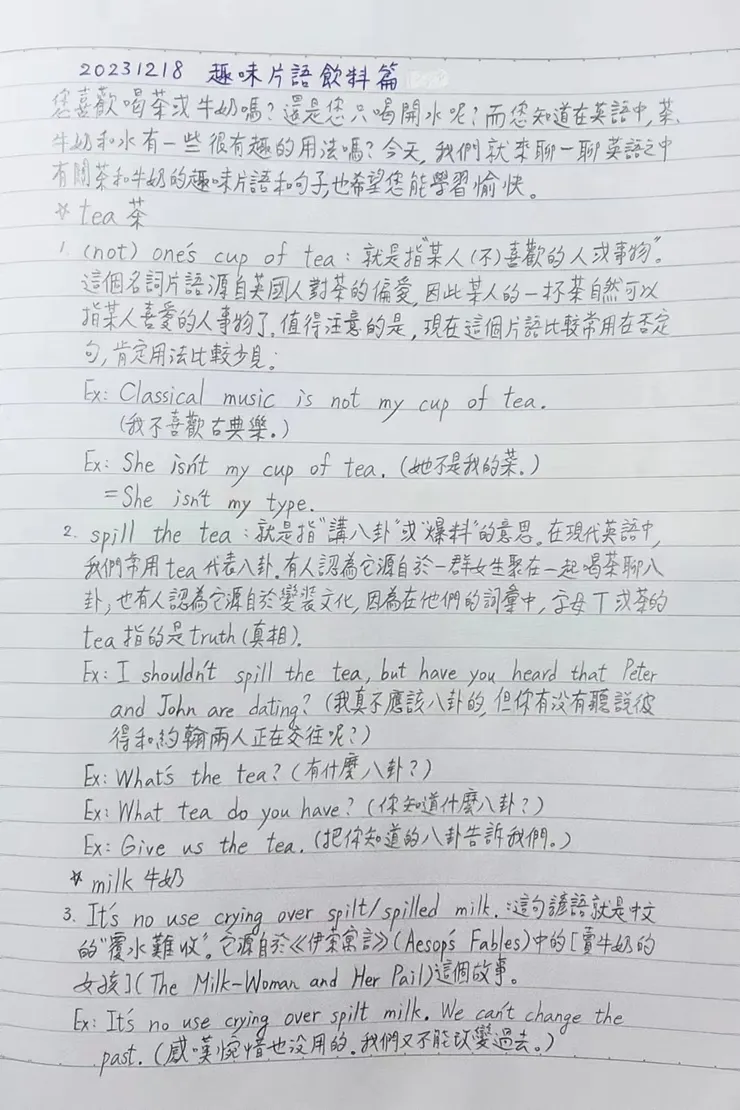 20231218 趣味片語飲料篇
您喜歡喝茶或牛奶嗎?還是您只喝開水呢?而您知道在英語中,茶、
牛奶和水有一些很有趣的用法嗎?今天,我們就來聊一聊英語之中
有關茶和牛奶的趣味片語和句子,也希望您能學習愉快。
☆ tea 茶
1. (not) one's cup of tea:就是指"某人(不)喜歡的人或事物"。
這個名詞片語源自英國人對茶的偏愛,因此某人的一杯茶自然可以
指某人喜愛的人事物了。值得注意的是,現在這個片語比較常用在否定
句,肯定用法比較少見:
Ex: Classical music is not my cup of tea.
(我不喜歡古典樂。)
Ex: She isn't my cup of tea. (她不是我的菜。)
=She isn't my type.
2. spill the tea:就是指"講八卦"或"爆料"的意思。在現代英語中,
我們常用tea代表八卦。有人認為它源自於一群女生聚在一起喝茶聊八
卦;也有人認為它源自於變裝文化,因為在他們的詞彙中,字母T或茶的
tea指的是truth(真相).
Ex: I shouldn't spill the tea, but have you heard that Peter
and John are dating? (我真不應該八卦的,但你有沒有聽說彼
得和約翰兩人正在交往呢?)
Ex: What's the tea? (有什麼八卦?)
Ex: What tea do you have? (你知道什麼八卦?)
Ex: Give us the tea. (把你知道的八卦告訴我們。)
☆ milk 牛奶
3. It's no use crying over spilt/spilled milk.:這句諺語就是中文
的"覆水難收"。它源自於《伊索寓言》(Aesop's Fables)中的[賣牛奶的
女孩](The Milk-Woman and Her Pail)這個故事。
Ex: It's no use crying over spilt milk. We can't change the
past. (感嘆惋惜也沒用的.我們又不能改變過去。)